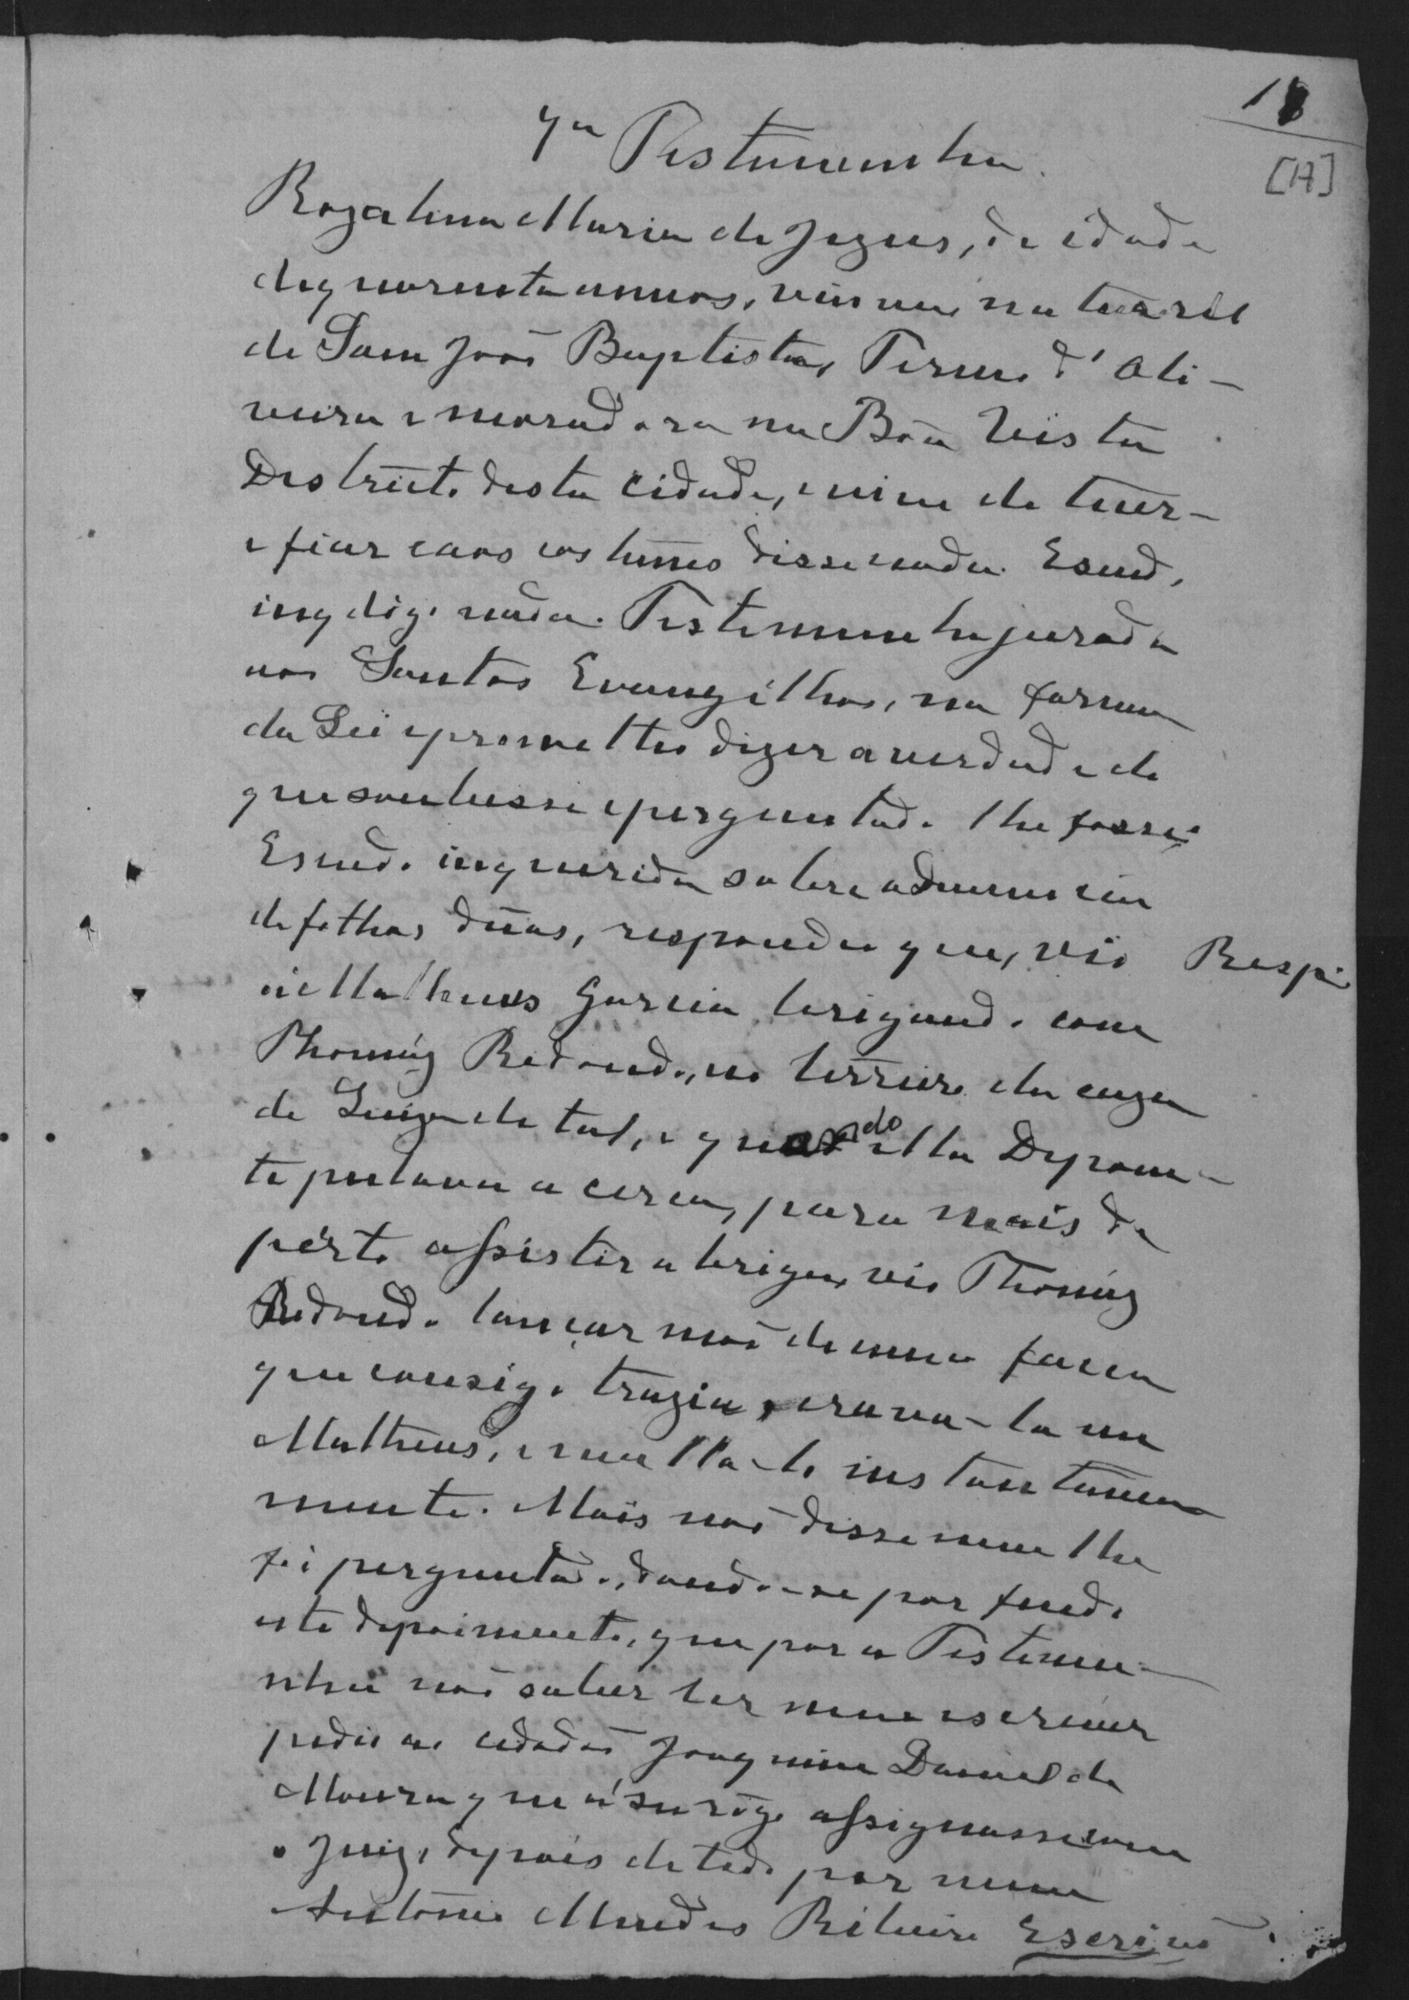 18
[17]
4ª Testemunha
Rozalina Maria de Jezus, de idade
de quarenta annos, viuva, natural
de Sam João Baptista, Termo d'Oli-
veira e moradora na Bôa Vista
Districto desta cidade, vive de tecer
e fiar e aos costumes disse nada. E sendo,
inq digo nada. Testemunha jurada
aos Santos Evangelhos, na forma
da Lei e prometteo dizer a verdade do
que soubesse e perguntado lhe fosse;
E sendo inquerida sobre a denuncia
de folhas duas, respondeo que, vio
Resp.
a Matheus Garcia brigando com
Thomáz Redondo, no terreiro da caza
de Luiza de tal, e quando ella Depoen-
te pulava a cerca, para mais de
perto assistir a briga, vio Thomáz
Redondo lançar mão de uma faca
que consigo trazia, crava-la em
Matheus, e matta-lo instantanea
mente. Mais não disse nem lhe
foi perguntado, dando-se por findo
este depoimento, que por a Testemu-
nha não saber ler nem escrever
pedio ao cidadão Joaquim Daniel de
Moura que a seu rogo assignasse com
o Juiz, depois de lido por mim
Antonio Mendes Ribeiro Escrivão